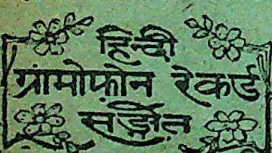 हिन्दी
ग्रामोफोन रेकर्ड
सङ्गीत